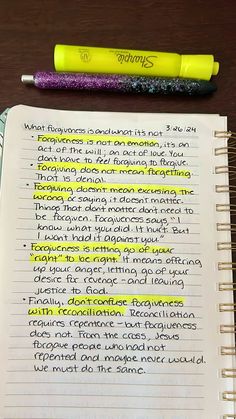 Sharpie
What forgiveness is and what it's not 3-26-24
• Forgiveness is not an emotion, it's an
act of the will, an act of love. You
don't have to feel forgiving to forgive.
• Forgiving does not mean forgetting.
That is denial.
• Forgiving doesn't mean excusing the
wrong or saying it doesn't matter.
Things that don't matter don't need to
be forgiven. Forgiveness says, "I
know what you did. It hurt. But
I won't hold it against you."
• Forgiveness is letting go of your
"right" to be right. It means offering
up your anger, letting go of your
desire for revenge - and leaving
justice to God.
• Finally, don't confuse forgiveness
with reconciliation. Reconciliation
requires repentence - but forgiveness
does not. From the cross, Jesus
forgave people who had not
repented and maybe never would.
We must do the same.